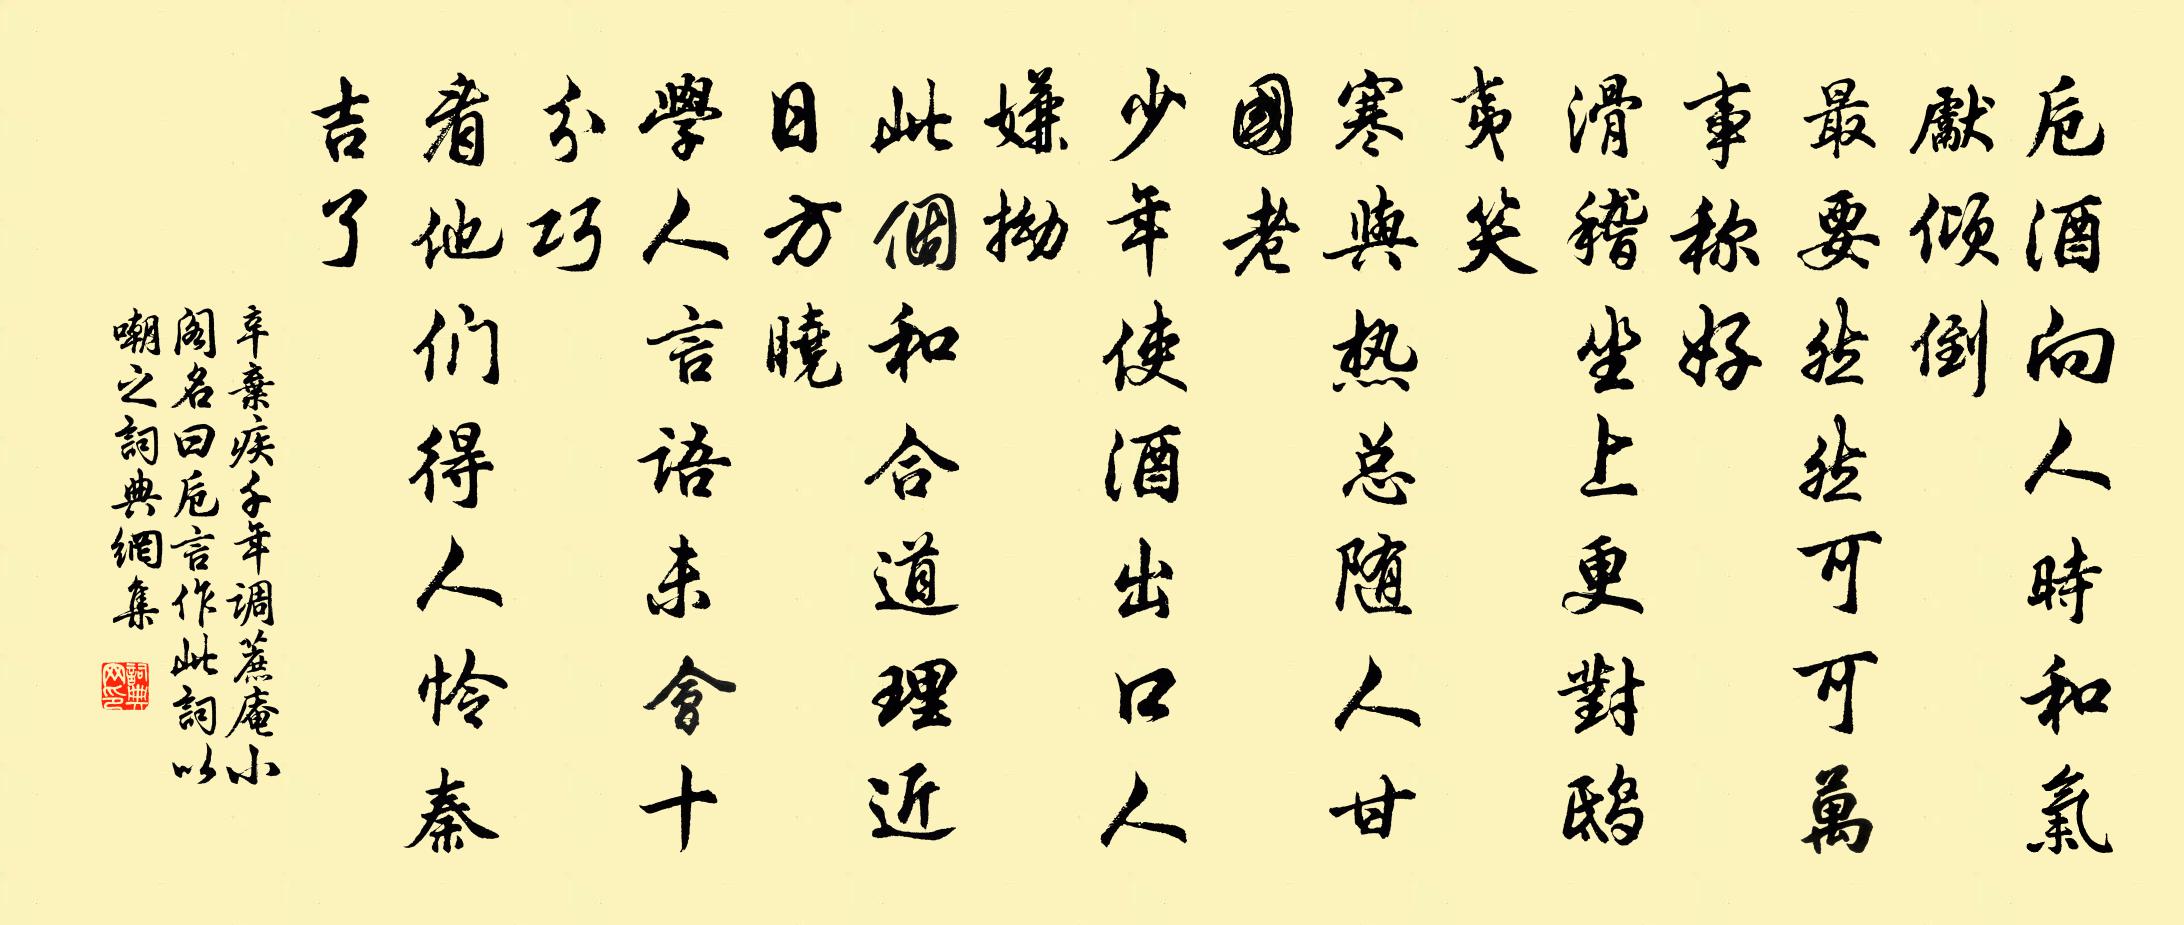 卮酒向人時和氣
獻傾倒
最要然然可可萬
事称好
滑稽坐上更對鸱
夷笑
寒與热总随人甘
國老
少年使酒出口人
嫌拗
此個和合道理近
日方曉
學人言語未會十
分巧
看他们得人怜秦
吉了
辛棄疾千年调蔗庵小
阁名曰卮言作此詞以
嘲之詞典網集
詞典
网印